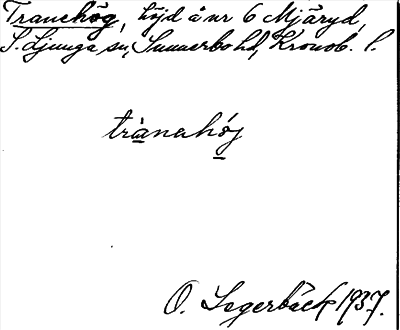 Tranehög, höjd å nr 6 Mjäryd,
S. Ljunga sn, Sunnerbo hd, Kronob. l.
trànahój
O. Lagerbäck 1937.